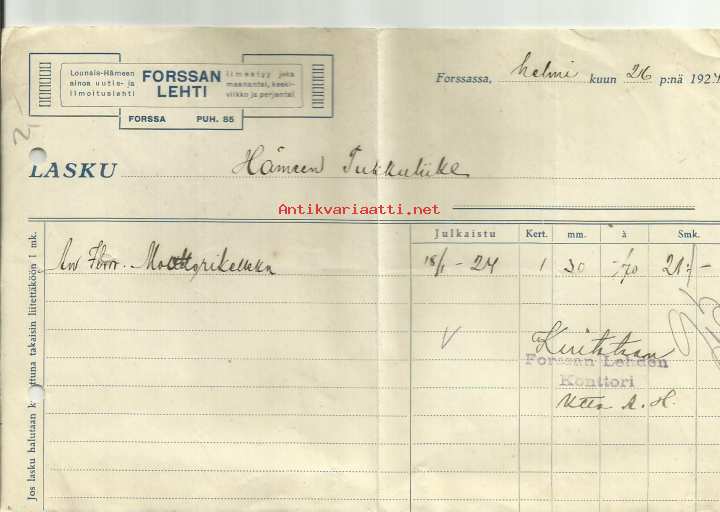 Lounais-Hämeen
ainoa uutis- ja
ilmoituslehti
FORSSAN
LEHTI
ilmestyy joka
maanantai, keski-
viikko ja perjantai
FORSSA PUH. 85
Forssassa, helmi kuun 26 p:nä 192
2,-
LASKU Hämeen Tukkuliike
Antikvariaatti.net
Julkaistu Kert. mm. à Smk.
18/1 - 24 1 30 -/70 21:-
Kuitataan
Forssan Lehden
Konttori
Jos lasku halutaan k ttuna takaisin liitettäköön 1 mk.